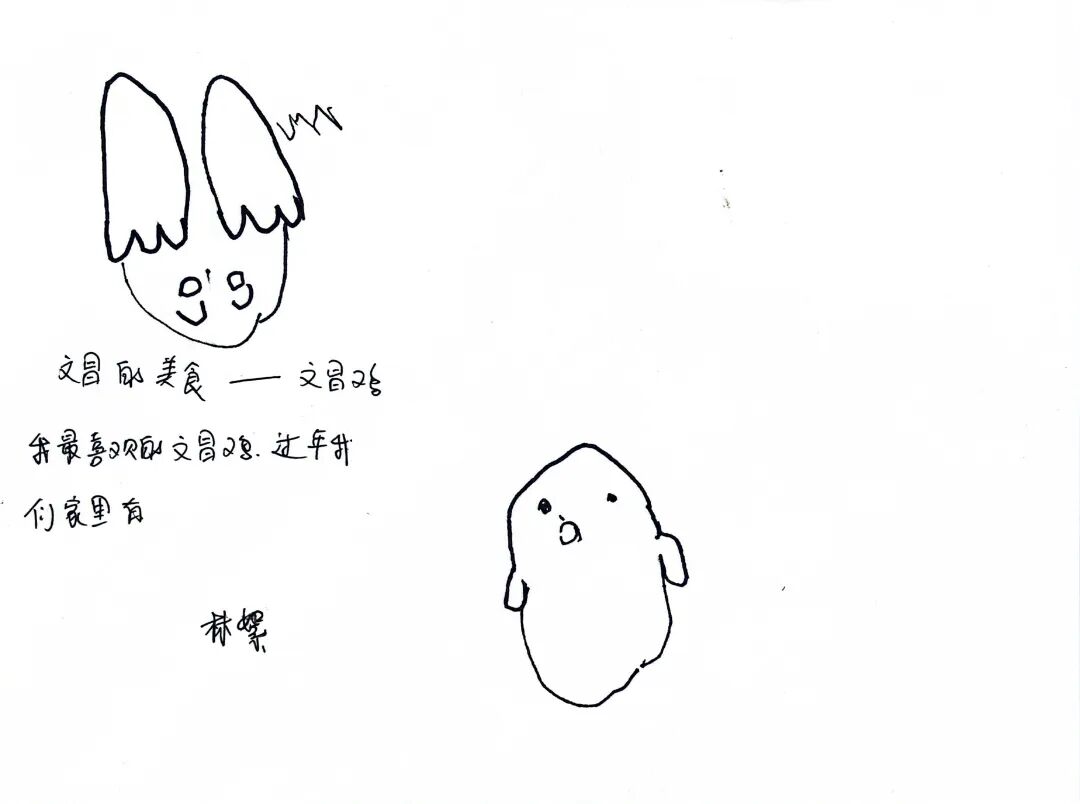 文冒的美食——文冒鸡
我最喜欢的文冒鸡.过年我
们家里有
林絮